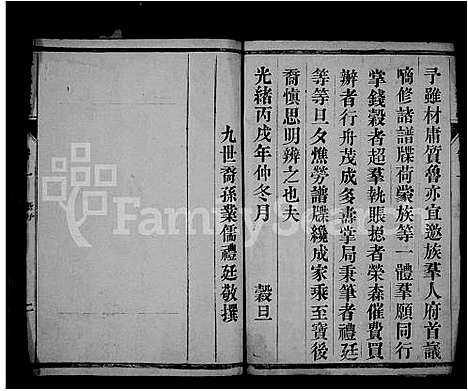 予雖材庸質魯亦宜邀族羣人府首議
嘀修譜譜牒荷蒙族等一體羣願同行
掌錢穀者超羣執賬摠者榮森催費買
辦者行舟茂成多壽掌局秉筆者禮廷
等等旦夕憔勞譜牒纔成家乘至寶後
裔慎思明辨之也夫
光緒丙戌年仲冬月 穀旦
九世裔孫業儒禮廷敬撰
FamilySearch